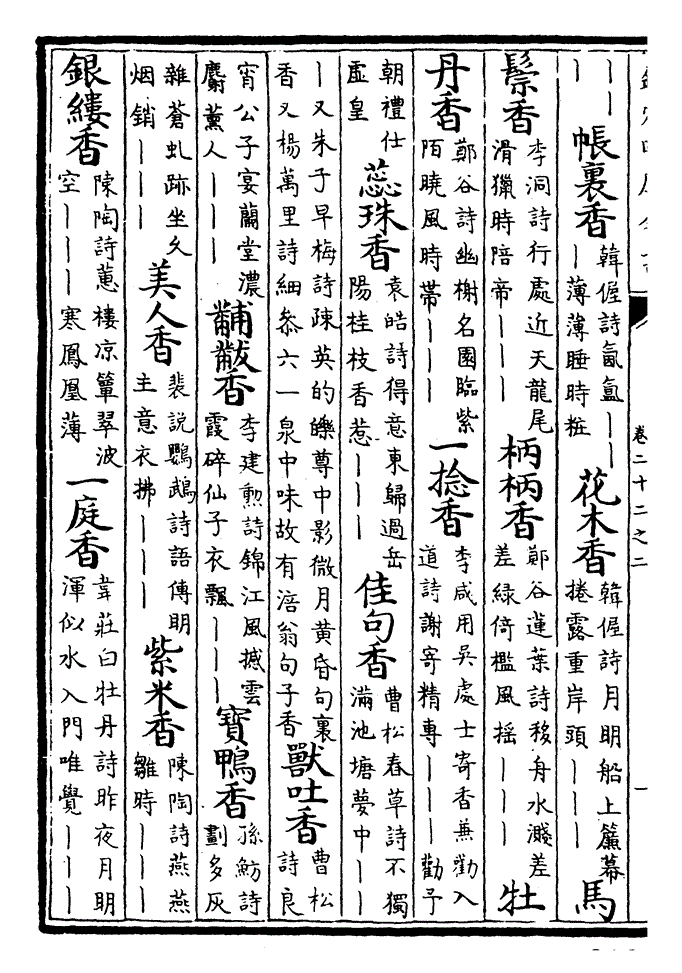 ｜｜帳裏香韓偓詩氤氳｜｜｜薄薄睡時粧花木香韓偓詩月明船上簾幕捲露重岸頭｜｜｜馬
鬃香李洞詩行處近天龍尾滑獵時陪帝｜｜｜柄柄香鄭谷蓮葉詩移舟水濺差差綠倚檻風搖｜｜｜牡
丹香鄭谷詩幽榭名園臨紫陌曉風時帶｜｜｜一捻香李咸用吳處士寄香兼勸入道詩謝寄精專｜｜｜勸予
朝禮仕虛皇蕊珠香袁皓詩得意東歸過岳陽桂枝香惹｜｜｜佳句香曹松春草詩不獨滿池塘夢中｜｜
｜又朱子早梅詩疎英的皪尊中影微月黃昏句裏香又楊萬里詩細叅六一泉中味故有涪翁句子香獸吐香曹松詩良
宵公子宴蘭堂濃麝薰人｜｜｜黼黻香李建勲詩錦江風撼雲霞碎仙子衣飄｜｜｜寶鴨香孫魴詩劃多灰
雜蒼虬跡坐久烟銷｜｜｜美人香裴說鸚鵡詩語傳明主意衣拂｜｜｜紫米香陳陶詩燕燕雛時｜｜｜
銀縷香陳陶詩蕙樓凉簟翠波空｜｜｜寒鳳凰薄一庭香韋莊白牡丹詩昨夜月明渾似水入門唯覺｜｜｜
卷二十二之二
一